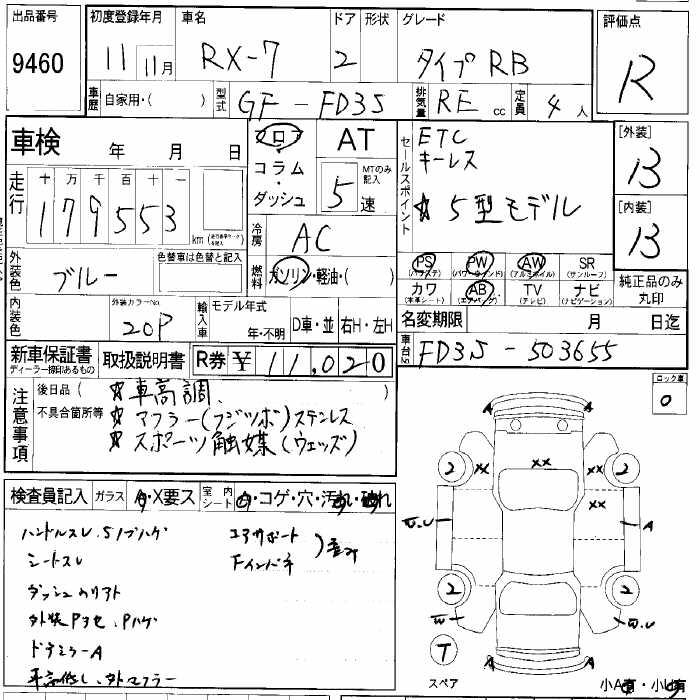 出品番号
9460
初度登録年月
11 11月
車名
RX-7
ドア
2
形状
グレード
タイプRB
評価点
R
車歴 自家用・( )
型式 GF-FD3S
排気量 RE cc
定員 4 人
車検 年 月 日
フロア
コラム・ダッシュ
AT
MTのみ記入
5 速
セールスポイント
ETC
キーレス
☆ 5型モデル
[外装]
B
[内装]
B
走行
十 万 千 百 十 一
179553
km
冷房 AC
外装色 ブルー
色替車は色替と記入
燃料 ガソリン・軽油・( )
PS (パワステ)
PW (パワーウィンド)
AW (アルミホイル)
SR (サンルーフ)
カワ (本革シート)
AB (エアバッグ)
TV (テレビ)
ナビ (ナビゲーション)
純正品のみ丸印
内装色
外装カラーNo.
20P
輸入車 モデル年式
年・不明
D車・並 右H・左H
名変期限 月 日迄
新車保証書
ディーラー捺印あるもの
取扱説明書
R券 ¥ 11,020
車台No FD3S - 503655
注意事項
後日品 ( )
不具合箇所等
☆車高調、
☆マフラー(フジツボ)ステンレス
☆スポーツ触媒(ウェッズ)
ロック車
0
検査員記入
ガラス A・X要ス
室内シート ・コゲ・穴・汚れ・破れ
ハンドルスレ、
シートスレ
外装
ドアミラーA
2 xx xx 2
xx
A A
A
2 2
W
W.U
T
スペア
A A
小A有・小U有